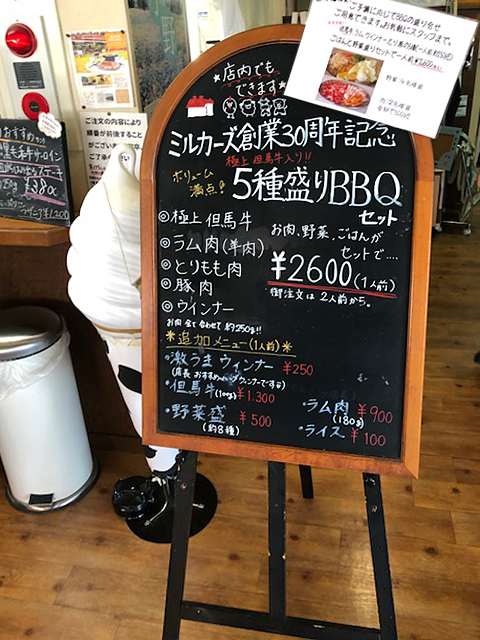 店内でも
できます
ミルカーズ創業30周年記念
極上但馬牛入り!!
ボリューム
満点
5種盛りBBQ
セット
◎極上但馬牛
◎ラム肉(羊肉)
◎とりもも肉
◎豚肉
◎ウインナー
お肉、野菜、ごはんが
セットで....
¥2600(1人前)
御注文は2人前から。
お肉全て合わせて約250g!!
*追加メニュー(1人前)*
・激うまウィンナー ¥250
・但馬牛(100g) ¥1.300
・野菜盛 ¥500
(約8種)
・ラム肉 ¥900
(180g)
・ライス ¥100
ご予算に応じてBBQの盛り合せ
ご用意できます。お気軽にスタッフまで。
ごはんと野菜盛りセットで一人前
ご注文の内容により
順番が前後すること
がございます
おすすめ